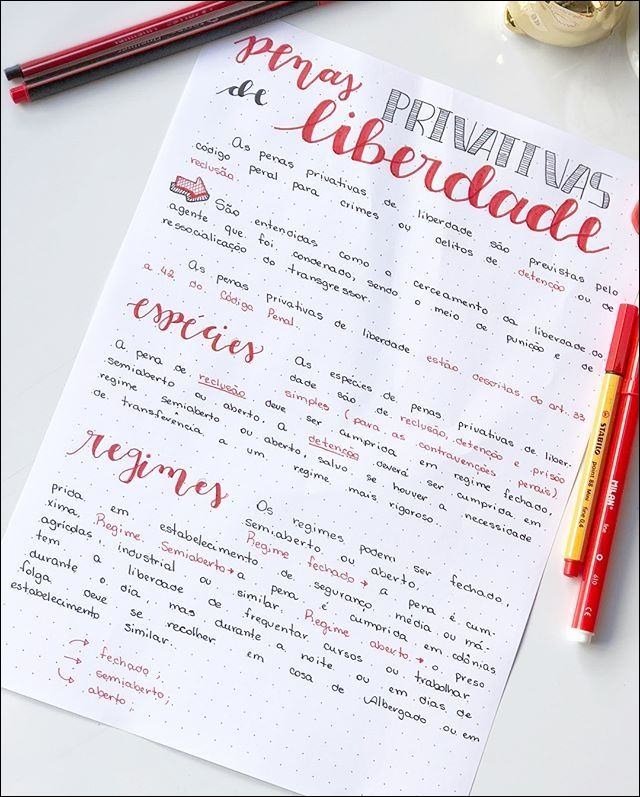 penas PRIVATIVAS
de liberdade
As penas privativas de liberdade são previstas pelo
código penal para crimes ou delitos de detenção ou de
reclusão.
São entendidas como o cerceamento da liberdade do
agente que foi condenado, sendo o meio de punição e de
ressocialização do transgressor.
As penas privativas de liberdade estão descritas do art. 33
a 42 do Código Penal.
espécies
As espécies de penas privativas de liber-
dade são de reclusão, detenção e prisão
simples (para as contravenções penais)
A pena de reclusão deve ser cumprida em regime fechado,
semiaberto ou aberto, a detenção deverá ser cumprida em
regime semiaberto ou aberto, salvo se houver a necessidade
de transferência a um regime mais rigoroso.
regimes
Os regimes podem ser fechado,
semiaberto ou aberto.
Regime fechado → a pena é cum-
prida em estabelecimento de segurança média ou má-
xima. Regime Semiaberto → a pena é cumprida em colônias
agrícolas, industrial ou similar. Regime aberto → o preso
tem a liberdade de frequentar cursos ou trabalhar
durante o dia mas durante a noite ou em dias de
folga deve se recolher em casa de Albergado ou em
estabelecimento similar.
→ fechado;
→ semiaberto;
→ aberto;
STABILO
point 88 Mini fine 0,4
MILAN
fine
610
CE